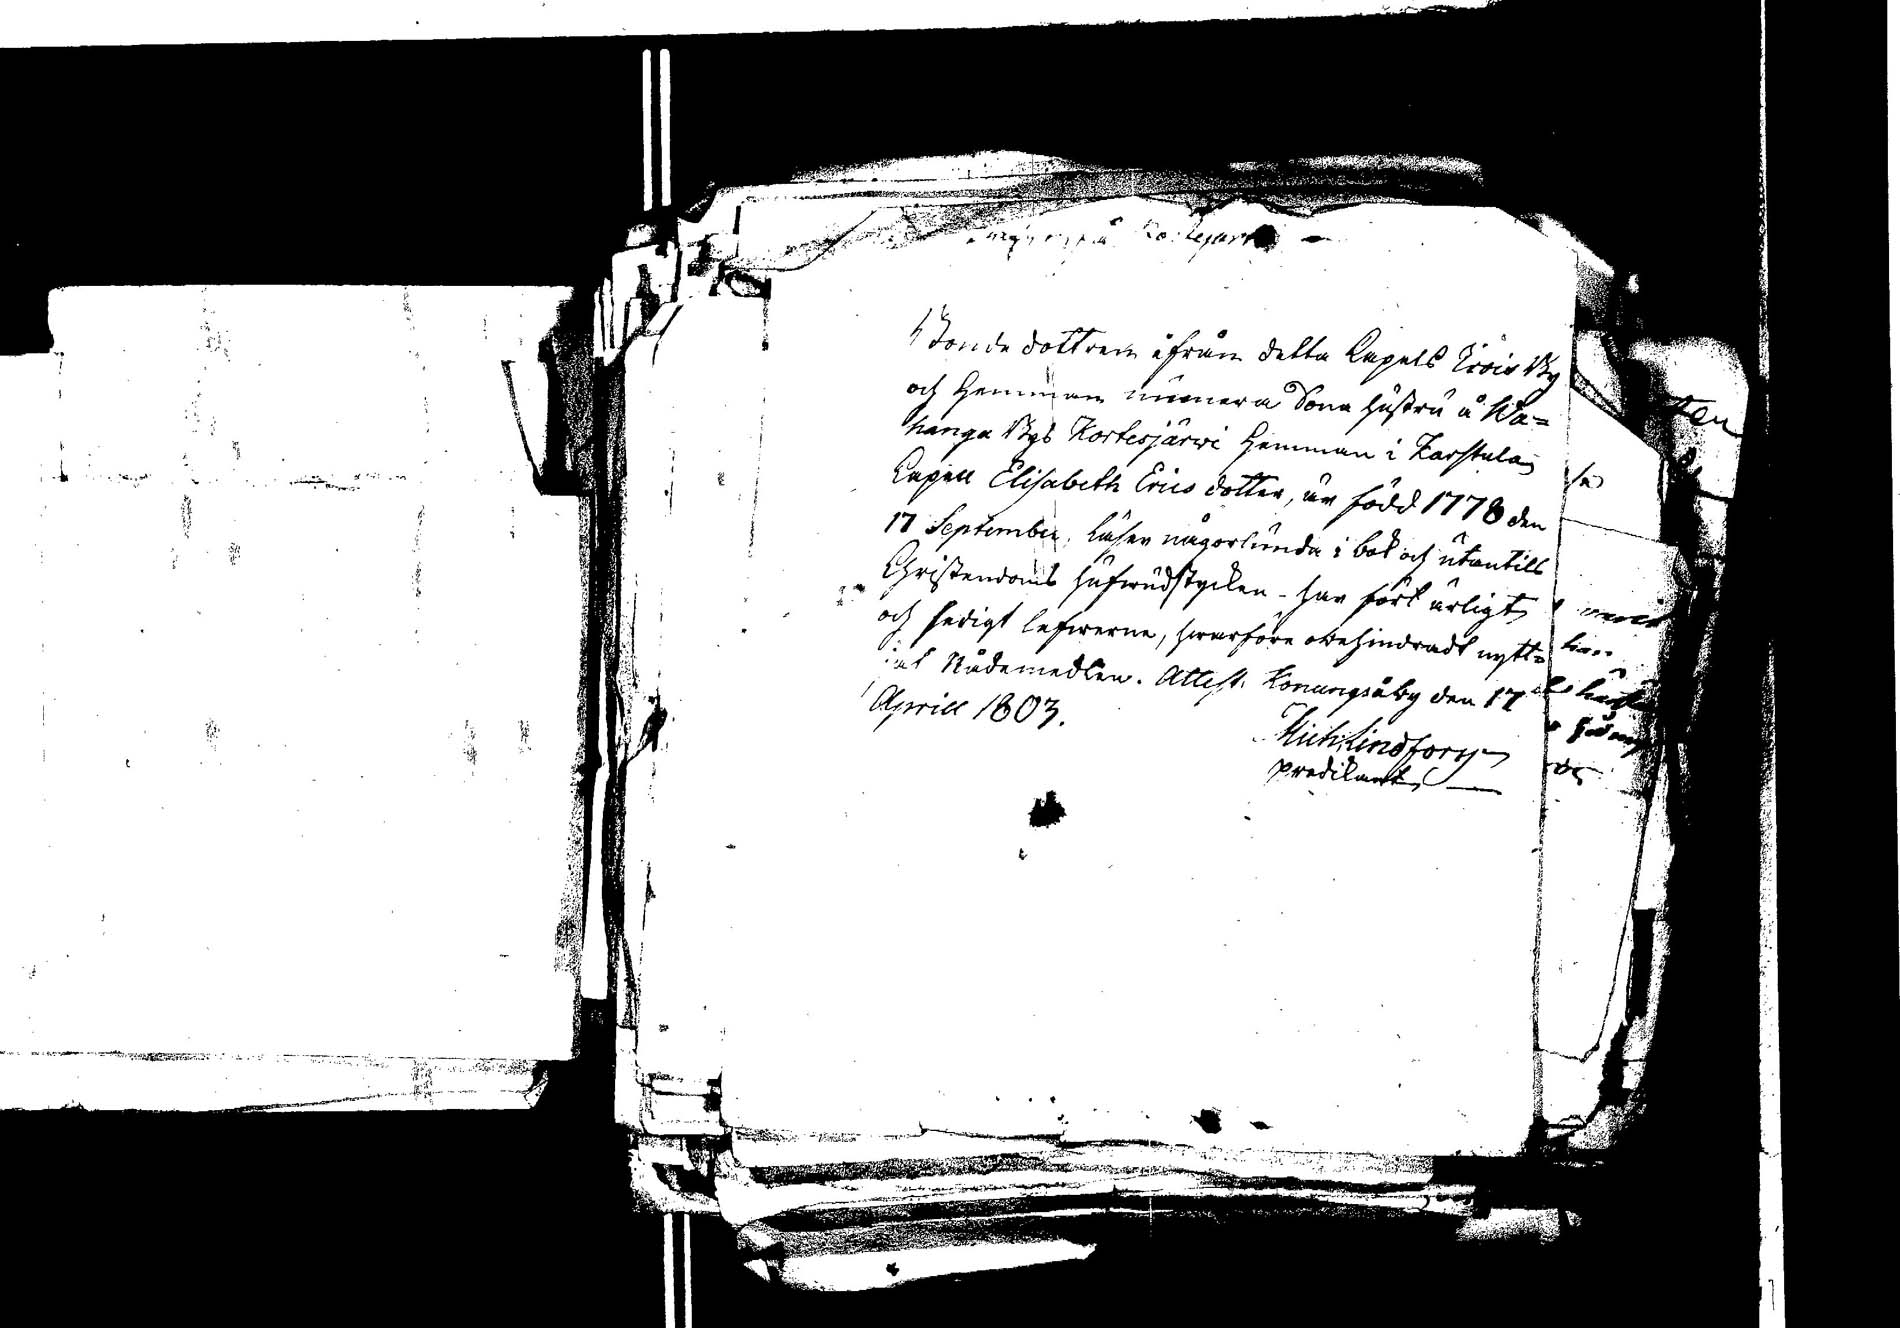 Bonde dottren ifrån detta Capels Kroix By
och Hemman numera Sona hustru å Wa=
hanga Bys Kortesjärwi Hemman i Karstula
Capell Elisabeth Erics dotter, är född 1778 den
17 September, läser någorlunda i bok och utantills
Christendoms hufwudstycken - har fört ärligt
och sedigt lefwerne, hwarföre obehindradt nytt=
jat Nådemedlen. Attest. Konungsåby den 17
Aprill 1803.
Mich Lindfors
predikant